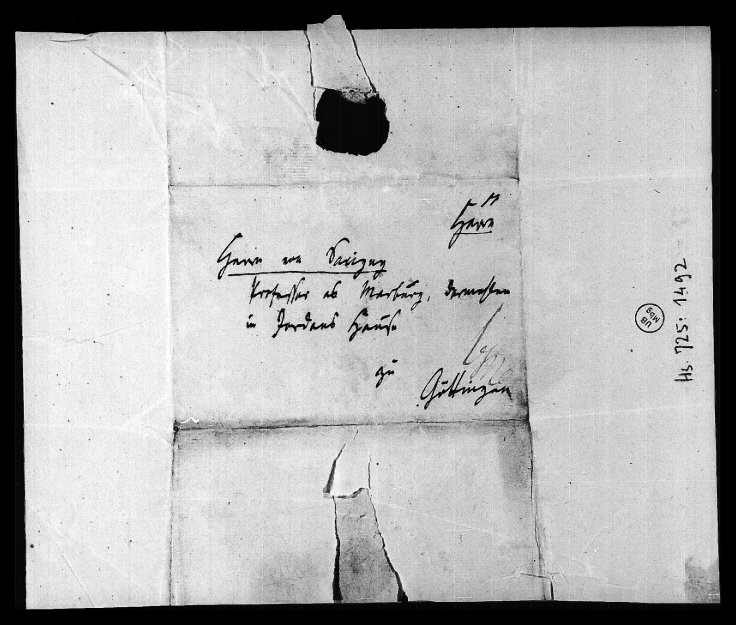 Herrn
Herrn von Savigny
Professor aus Marburg, dermahlen
in Jordans Hause
zu
Göttingen
UB
Mbg
Hs. 725: 1492